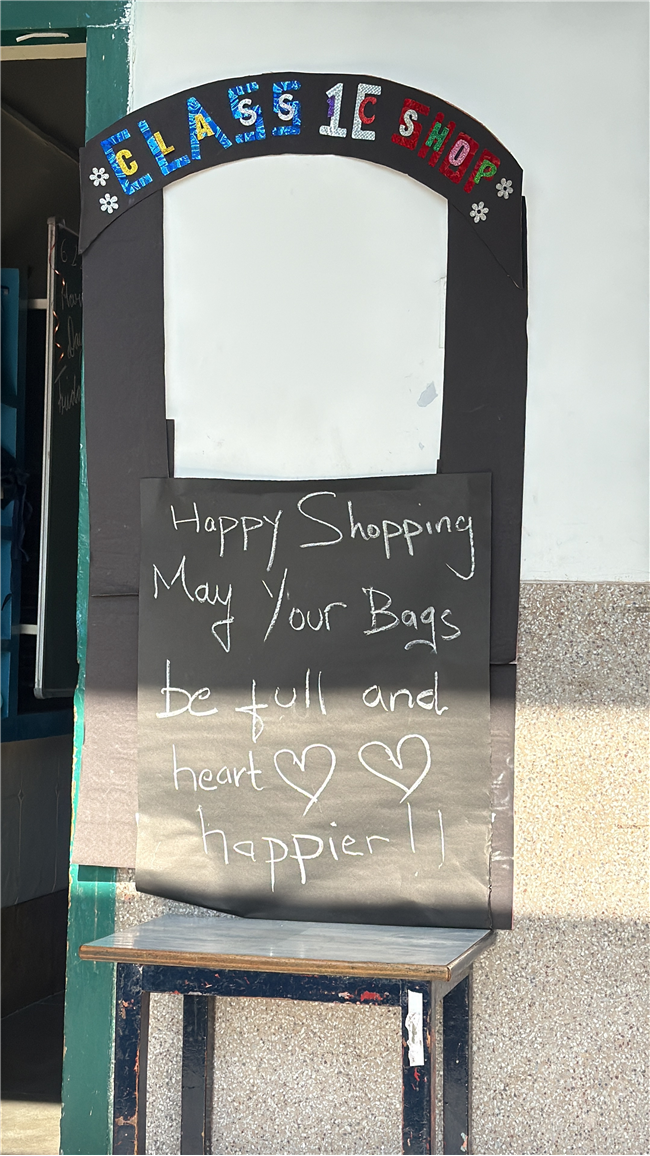 CLASS 1C SHOP
Happy Shopping
May Your Bags
be full and
heart
happier!!